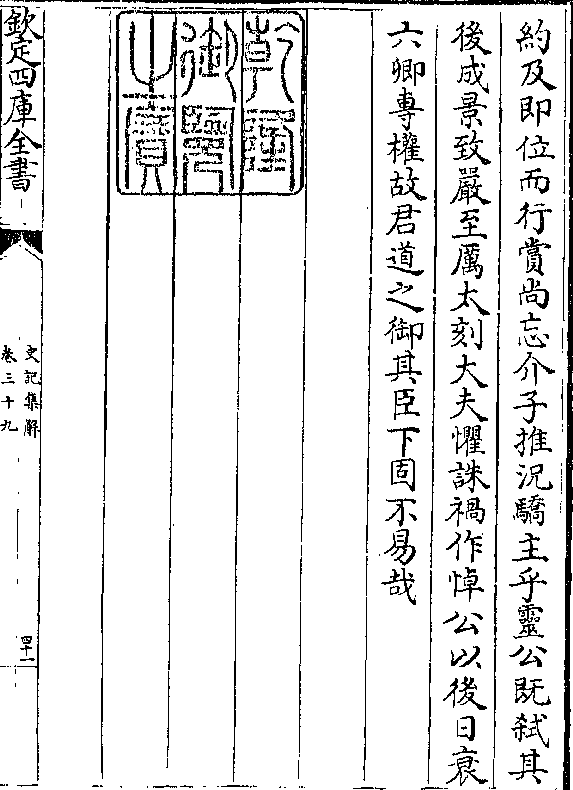 約及即位而行賞尚忘介子推況驕主乎靈公既弑其
後成景致嚴至厲太刻大夫懼誅禍作悼公以後日衰
六卿專權故君道之御其臣下固不易哉
乾隆
御覽
之寶
欽定四庫全書
史記集解
卷三十九
四十一